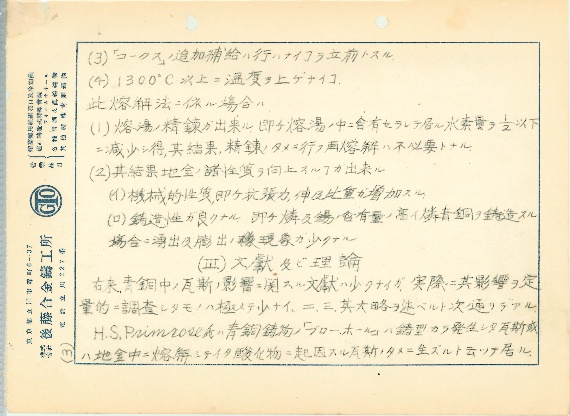 (3)「コークス」ノ追加補給ハ行ハナイコヲ立前トスル
(4) 1300°C以上ニ温度ヲ上ゲナイコ.
此熔解法ニ依ル場合ハ
(1) 熔湯ノ精錬ガ出来ル 即チ熔湯ノ中ニ含有セラレテ居ル水素量ヲ½以下
ニ減少シ得,其結果,精錬ノタメニ行フ再熔解ハ不必要トナル.
(2) 其結果地金ノ諸性質ヲ向上スルコガ出来ル
(イ) 機械的性質即チ抗張力,伸及比重ガ増加スル.
(ロ) 鋳造性ガ良クナル 即チ燐及錫ノ含有量ノ高イ燐青銅ヲ鋳造スル
場合ニ湧出及膨出ノ機現象ガ少クナル
(III) 文獻及ビ理論
右来,青銅中ノ瓦斯ノ影響ニ関スル文献ハ少クナイガ,実際ニ其影響ヲ定
量的ニ調査シタモノハ極メテ少ナイ.二,三,其大略ヲ述ベルト次ノ通リデアル.
H.S.Primrose氏ハ青銅鋳物ノ「ブローホール」ハ鋳型カラ発生シタ瓦斯或
ハ地金中ニ熔解シテイタ酸化物ニ起因スル瓦斯ノタメニ生ズルト云ツテ居ル.
(3)
後藤合金鑄工所